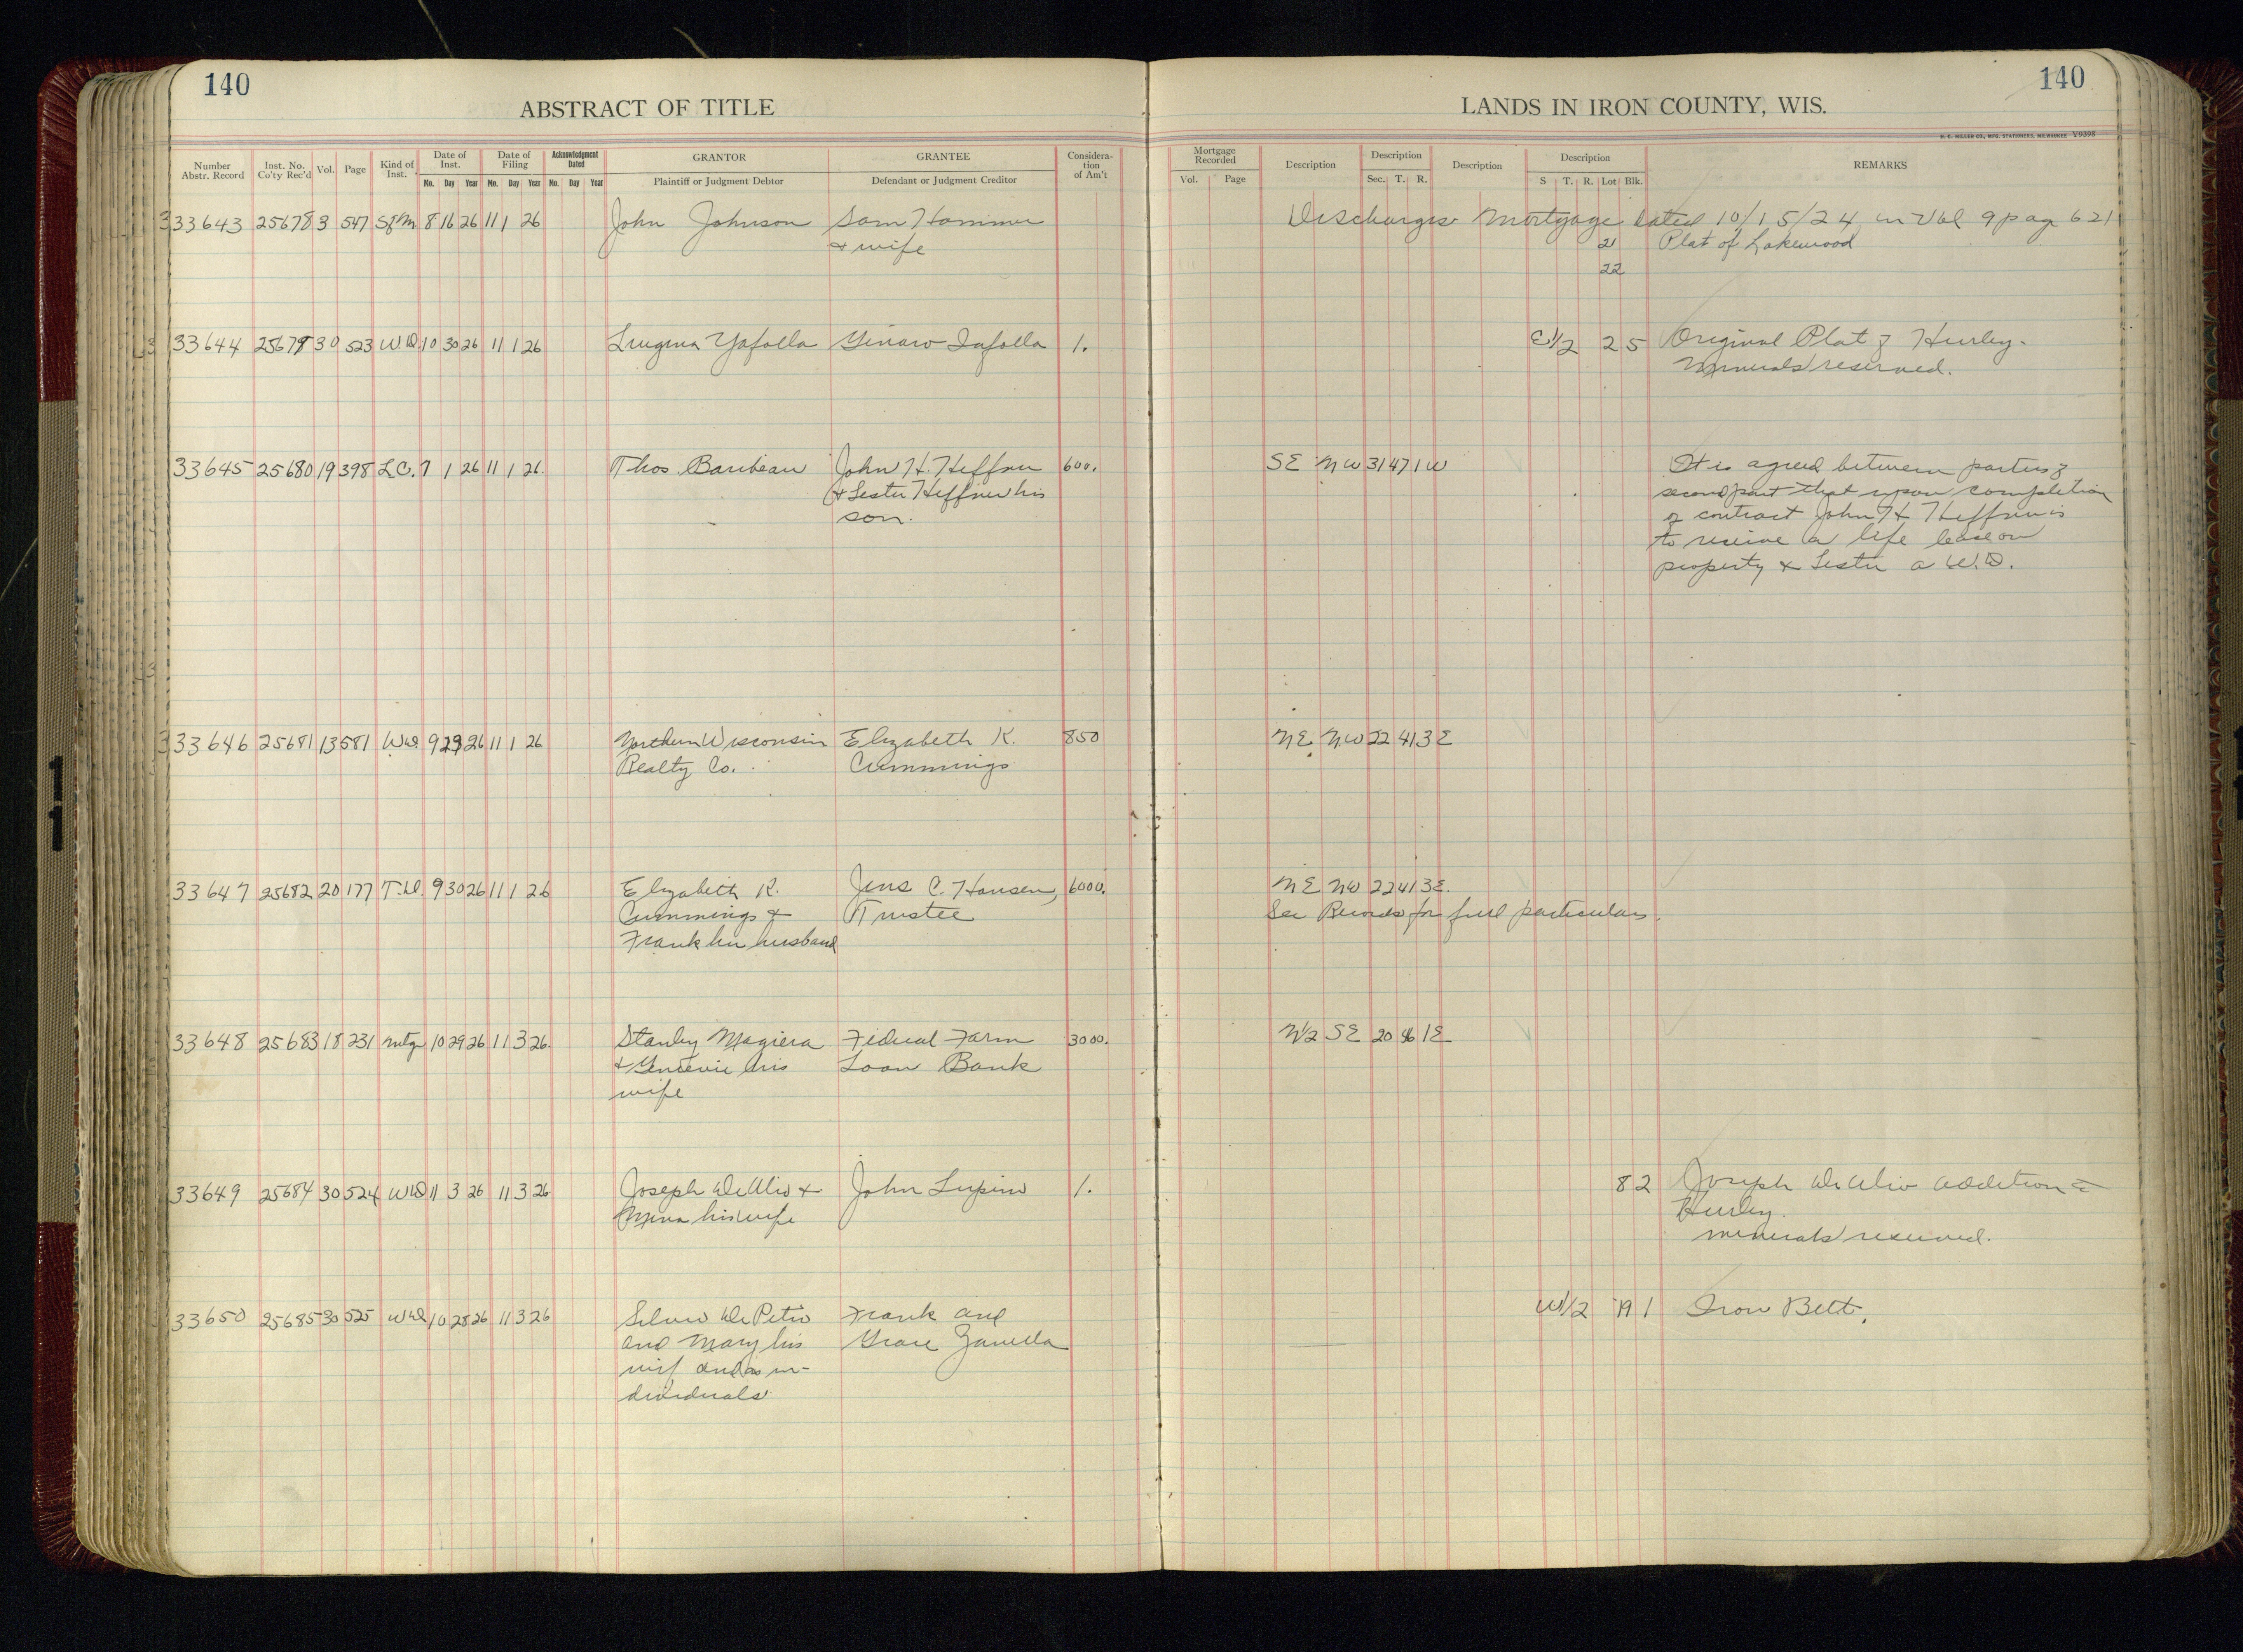 140
140
ABSTRACT OF TITLE
LANDS IN IRON COUNTY, WIS.
H. C. MILLER CO., MFG. STATIONERS, MILWAUKEE Y9398
Number Abstr. Record Inst. No. Co'ty Rec'd Vol. Page Kind of Inst. Date of Inst. Mo. Day Year Date of Filing Mo. Day Year Acknowledgment Dated Mo. Day Year GRANTOR Plaintiff or Judgment Debtor GRANTEE Defendant or Judgment Creditor Considera-tion of Am't Mortgage Recorded Vol. Page Description Description Sec. T. R. Description Description S T. R. Lot Blk. REMARKS
33643 25678 3 547 8 16 26 11 1 26 John Johnson Sam Hammer Discharges Mortgage dated 10/15/24 in Vol 9 pag 621
& wife 21 Plat of Lakewood
22
33644 25679 30 523 W.D. 10 30 26 11 1 26 Yafolla Ginaro Iafolla 1. E1/2 2 5 Original Plat of Hurley.
Minerals reserved.
33645 25680 19 398 L.C. 7 1 26 11 1 26. Thos. Baribeau John H. Heffner 600. SE NW 31 47 1W It is agreed between parties of
& Lester Heffner his second part that upon completion
son. of contract John H Heffner is
to receive a life lease on
property & Lester a W.D.
33646 25681 13 581 WD. 9 29 26 11 1 26 Northern Wisconsin Elizabeth K. 850 NE NW 22 41 3E
Realty Co. Cummings
33647 25682 20 177 T.D. 9 30 26 11 1 26 Elizabeth K. Jens C. Hansen, 6000. NE NW 22 41 3E.
Cummings & Trustee See Records for full particulars.
Franklin husband
33648 25683 18 231 mtge 10 29 26 11 3 26. Stanley Magiera Federal Farm 3000. N1/2 SE 20 46 1E
& Genevie his Loan Bank
wife
33649 25684 30 524 WD 11 3 26 11 3 26 Joseph DeUlio & John Lupino 1. 8 2 Joseph DeUlio addition to
his wife Hurley.
minerals reserved.
33650 25685 30 525 WD 10 28 26 11 3 26 Silvio DePetro Frank and W1/2 19 1 Iron Belt.
and Mary his Grace Zanella
wif and as in-
dividuals